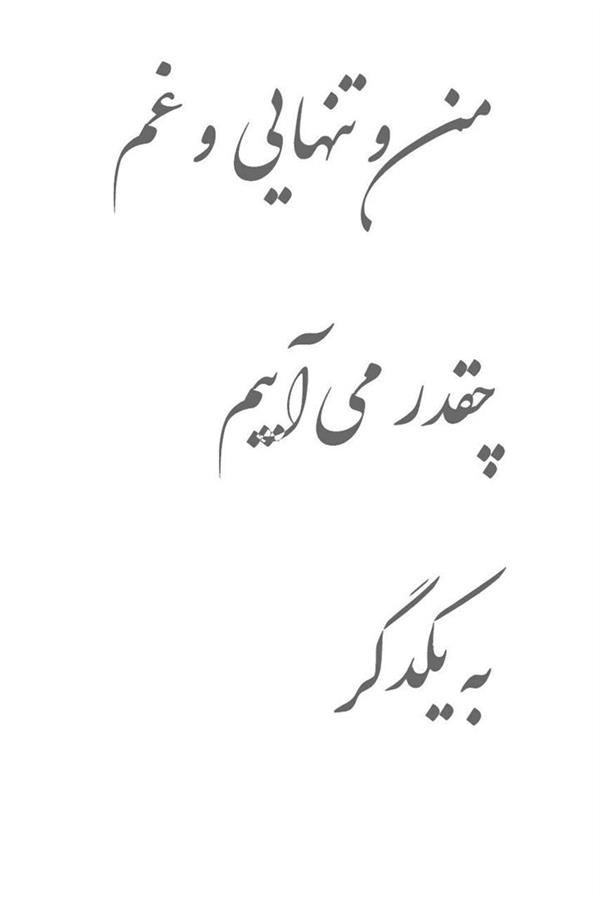 من و تنهایی و غم
چقدر می آییم
به یکدگر